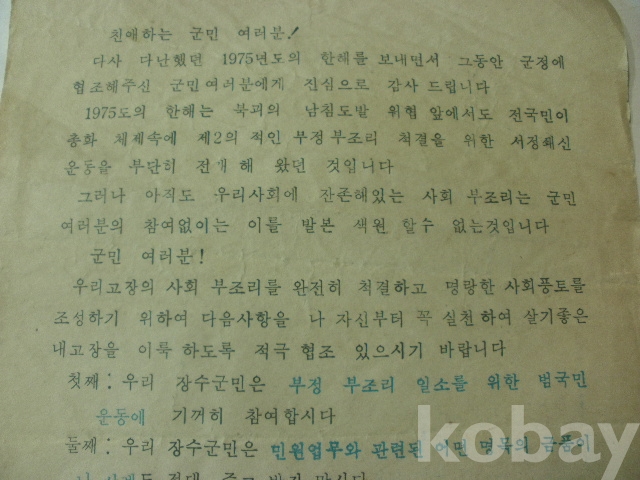 친애하는 군민 여러분!
다사 다난했던 1975년도의 한해를 보내면서 그동안 군정에
협조해주신 군민여러분에게 진심으로 감사 드립니다
1975도의 한해는 북괴의 남침도발 위협 앞에서도 전국민이
총화 체제속에 제2의 적인 부정부조리 척결을 위한 서정쇄신
운동을 부단히 전개해 왔던 것입니다
그러나 아직도 우리사회에 잔존해있는 사회 부조리는 군민
여러분의 참여없이는 이를 발본 색원 할수 없는것입니다
군민 여러분!
우리고장의 사회 부조리를 완전히 척결하고 명랑한 사회풍토를
조성하기 위하여 다음사항을 나 자신부터 꼭 실천하여 살기좋은
내고장을 이룩 하도록 적극 협조 있으시기 바랍니다
첫째: 우리 장수군민은 부정 부조리 일소를 위한 범국민
운동에 기꺼히 참여합시다
둘째: 우리 장수군민은 민원업무와 관련된 어떤 명목의 금품이
나 사례도 절대 주고 받지 맙시다
kobay